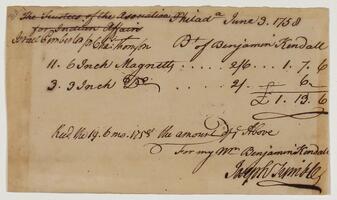 The Trustees of the Association Philad.a June 3. 1758
for Indian Affairs
Israel Pemberton Bt of Benjamin Kendall
11. 6 Inch Magnetts 2/6 1. 7. 6
3. 3 Inch 2/ 6
£ 1. 13. 6
Recd the 19. 6 mo. 1758 the amount of ye Above
For my Mr Benjamin Kendall
Joseph Trimble